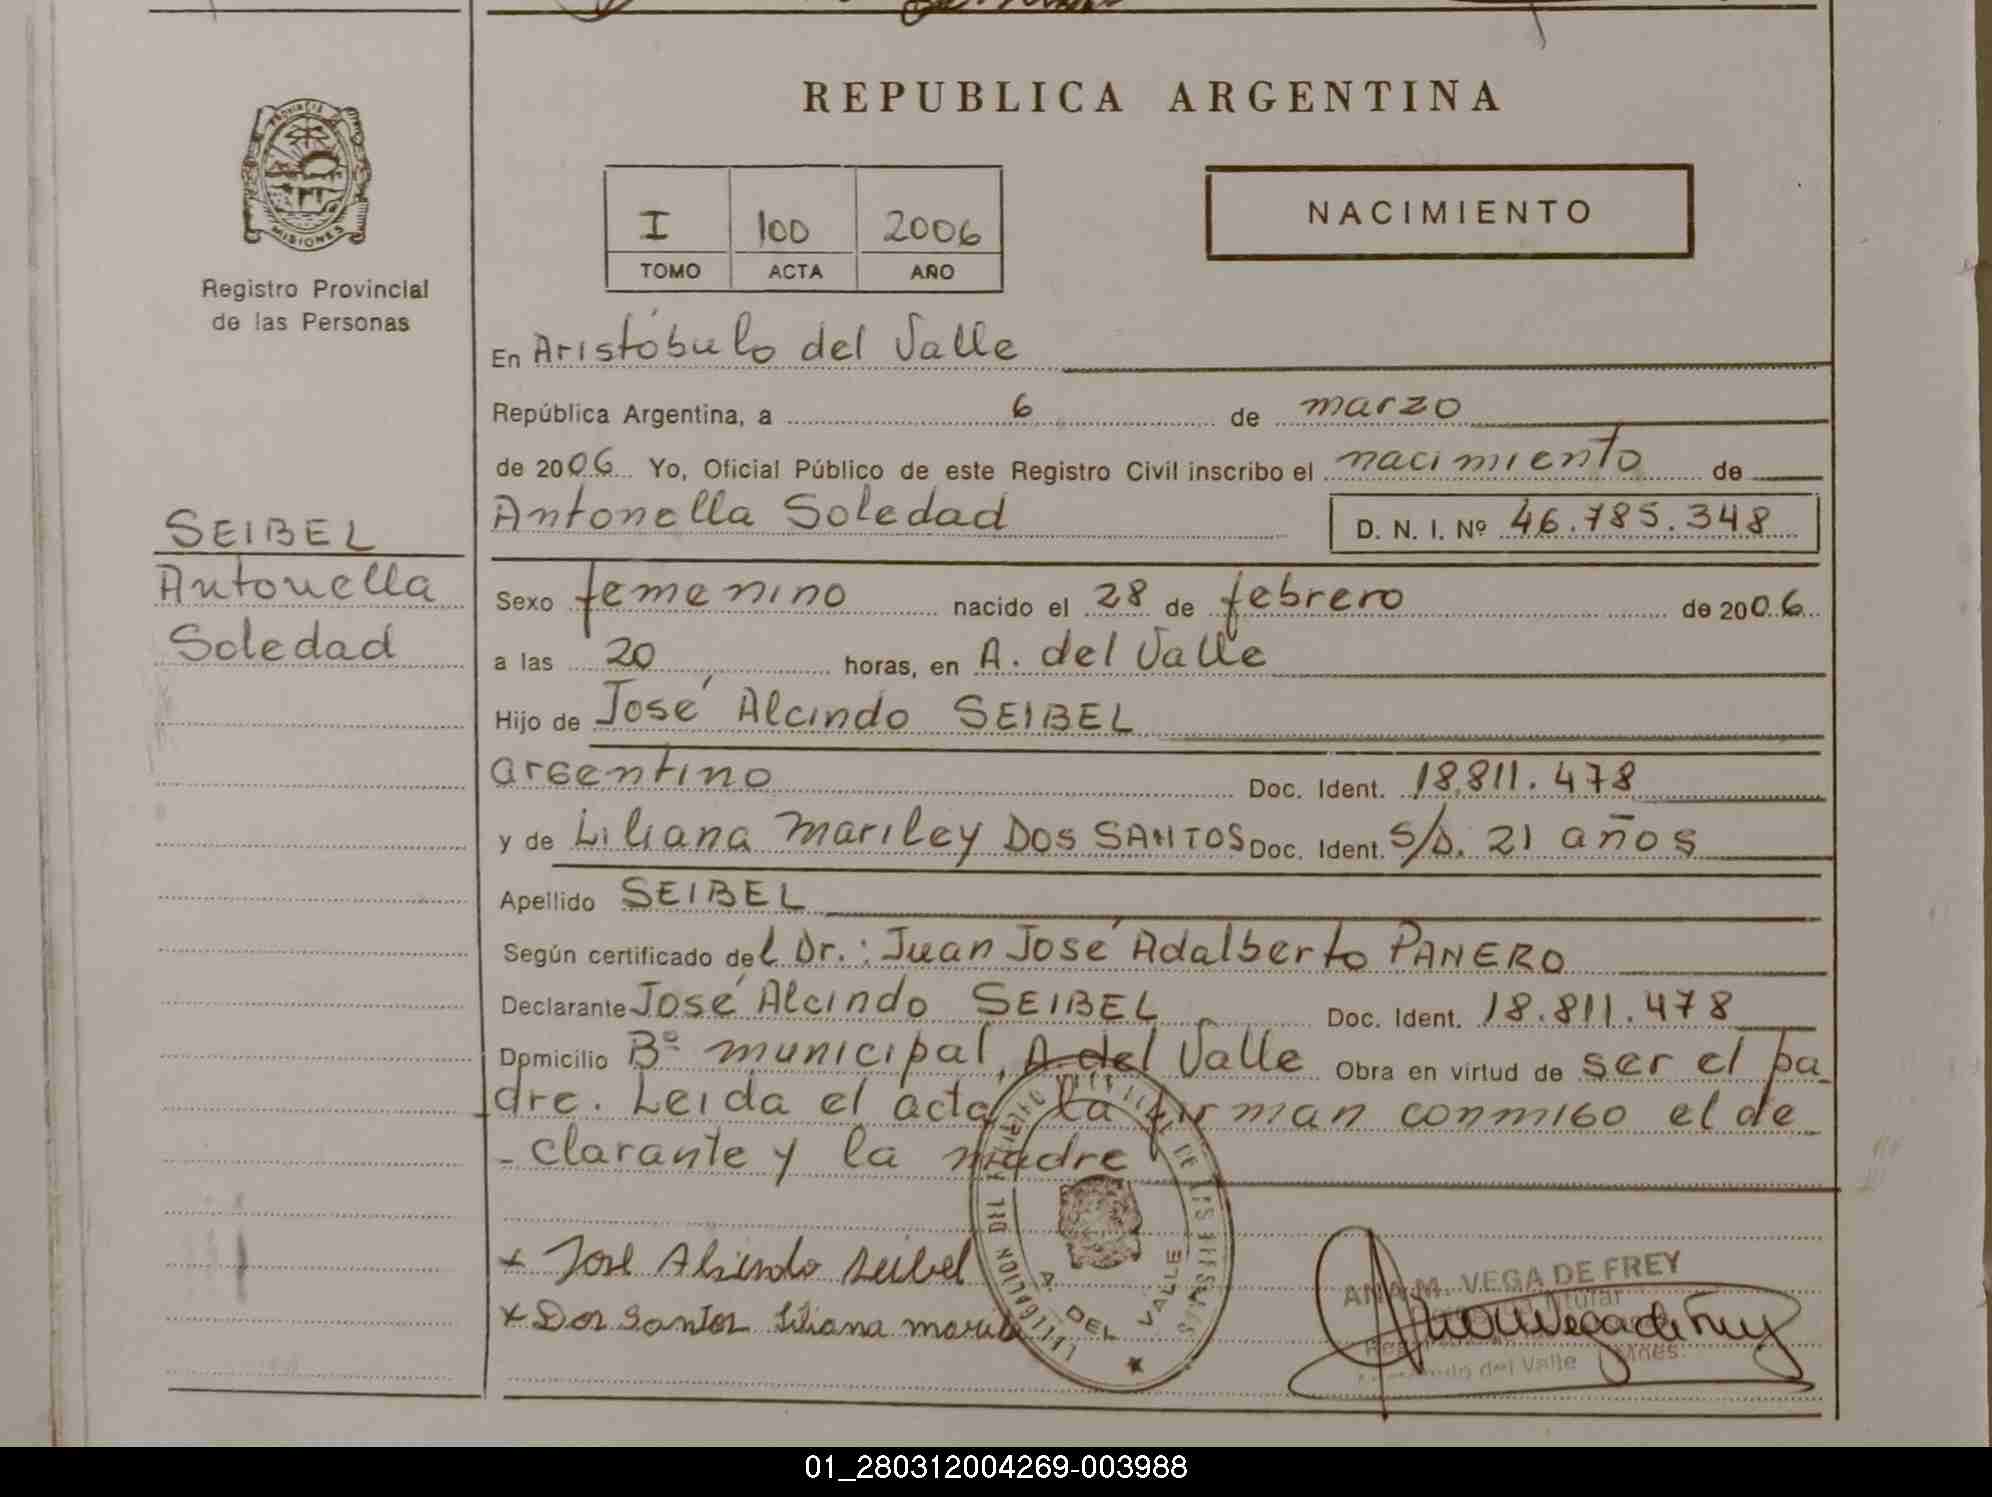 REPUBLICA ARGENTINA
PROVINCIA DE
MISIONES
Registro Provincial
de las Personas
I 100 2006
TOMO ACTA AÑO
NACIMIENTO
En Aristóbulo del Valle
República Argentina, a 6 de marzo
de 2006 Yo, Oficial Público de este Registro Civil inscribo el nacimiento de
Antonella Soledad D. N. I. Nº 46.785.348
SEIBEL
Antonella
Soledad
Sexo femenino nacido el 28 de febrero de 2006
a las 20 horas, en A. del Valle
Hijo de José Alcindo SEIBEL
argentino Doc. Ident. 18.811.478
y de Liliana Mariley DOS SANTOS Doc. Ident. S/D. 21 años
Apellido SEIBEL
Según certificado del Dr.: Juan José Adalberto PANERO
Declarante José Alcindo SEIBEL Doc. Ident. 18.811.478
Domicilio Bº municipal, A. del Valle Obra en virtud de ser el pa
dre. Leida el acta, la firman conmigo el de
-clarante y la madre
x José Alcindo Seibel
x Dos Santos Liliana
A. DEL VALLE
ANA M. VEGA DE FREY
del Valle Mnes.
01_280312004269-003988